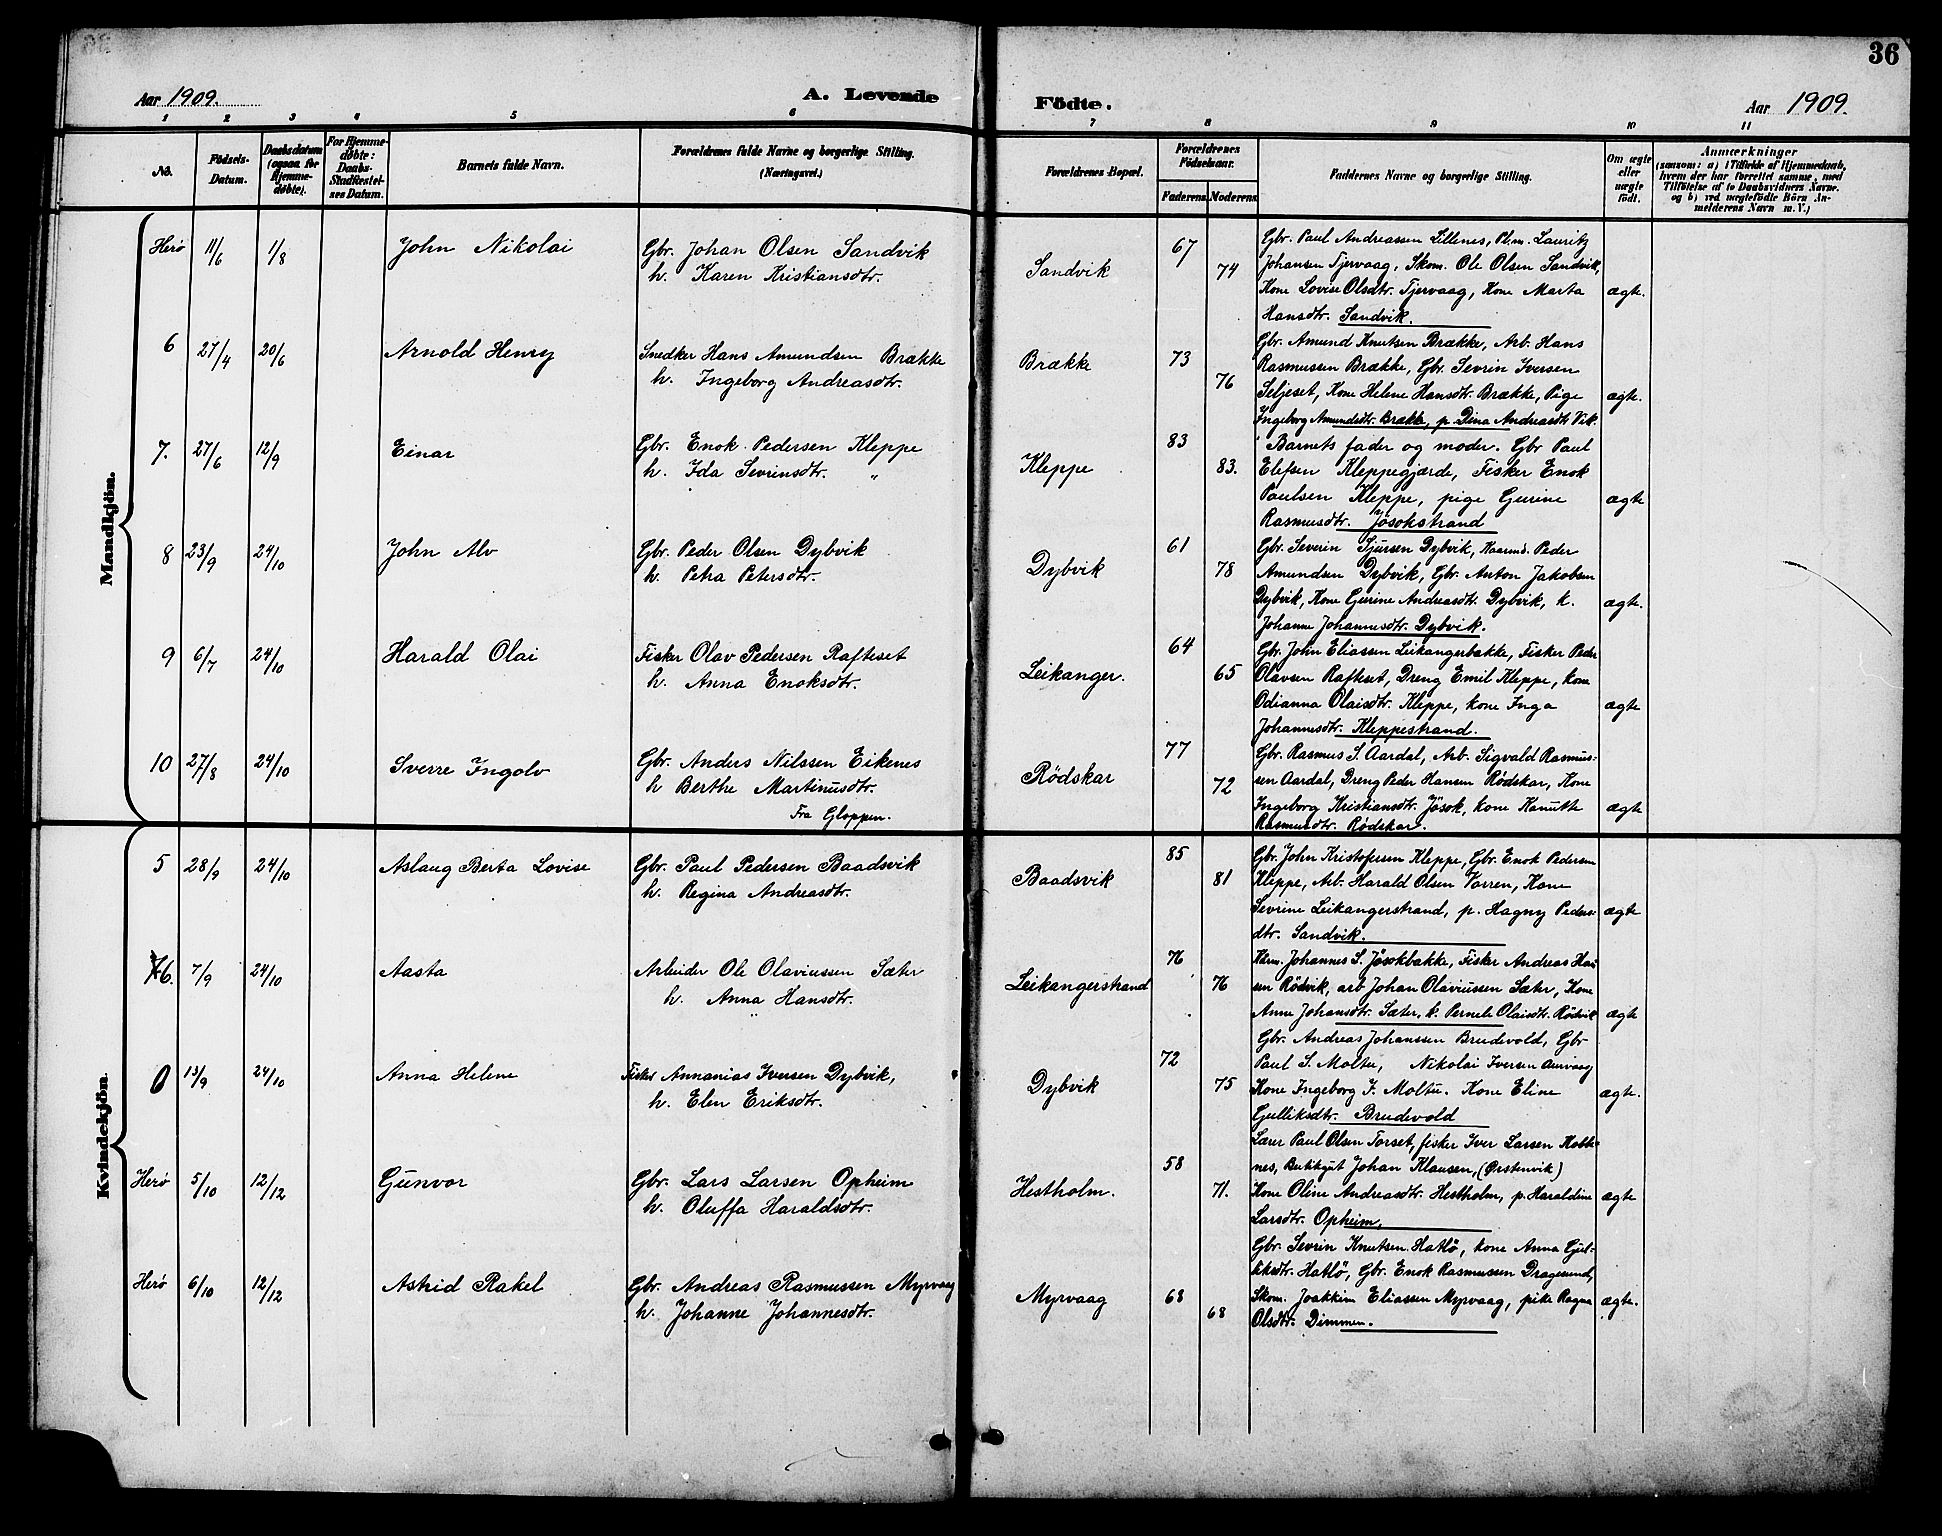 36
Aar 1909.
A. Levende
Födte.
Aar 1909.
1 2 3 4 5 6 7 8 9 10 11
No.
Födsels-
Datum.
Daabsdatum
(ogsaa for
Hjemme-
døbte).
For Hjemme-
døbte:
Daabs-
Stadfæstel-
ses Datum.
Barnets fulde Navn.
Forældrenes fulde Navne og borgerlige Stilling.
(Næringsvei.)
Forældrenes Bopæl.
Forældrenes
Födselsaar.
Faderens Moderens
Faddernes Navne og borgerlige Stilling.
Om ægte
eller
uægte
født.
Anmærkninger
(saasom: a) i Tilfælde af Hjemmedaab,
hvem der har forrettet samme, med
Tilföielse af to Daabsvidners Navne.
og b) ved uægtefödte Börn An-
melderens Navn m. V.)
Mandkjön.
Herø 11/6 1/8 John Nikolai
Gbr. Johan Olsen Sandvik
h. Karen Kristiansdtr.
Sandvik 67 74
Gbr. Paul Andreassen Lillenes, Pl.m. Lauritz
Johansen Tjervaag, Skom. Ole Olsen Sandvik,
Kone Lovise Olsdtr. Tjervaag, Kone Marta
Hansdtr. Sandvik.
ægte.
6 27/4 20/6 Arnold Henry
Snedker Hans Amundsen Brække
h. Ingeborg Andreasdtr.
Brække 73 76
Gbr. Amund Knutsen Brække, Arb. Hans
Rasmussen Brække, Gbr. Sevrin Iversen
Seljeset, Kone Helene Hansdtr. Brække, Pige
Ingeborg Amundsdtr. Brække, p. Dina Andreasdt. Vik.
ægte.
7. 27/6 12/9 Einar
Gbr. Enok Pedersen Kleppe
h. Ida Sevrinsdtr. "
Kleppe 83 83.
Barnets fader og moder. Gbr Paul
Elefsen Kleppegjærde, Fisker Enok
Paulsen Kleppe, pige Gurine
Rasmusdtr. Jösokstrand
ægte
8 23/9 24/10 John Alv
Gbr. Peder Olsen Dybvik
h. Petra Petersdtr.
Dybvik 61 78
Gbr. Severin Sjursen Dybvik, Kaarmd. Peder
Amundsen Dybvik, Gbr. Anton Jakobsen
Dybvik, Kone Gurine Andreasdtr. Dybvik, k.
Johanne Johannesdtr. Dybvik.
ægte.
9 6/7 24/10 Harald Olai
Fisker Olav Pedersen Rafteset
h. Anna Enoksdtr.
Leikanger. 64 65
Gbr. John Eliassen Leikangerbakke, Fisker Peder
Olavsen Rafteset, Dreng Emil Kleppe, kone
Odianna Olaisdtr. Kleppe, kone Inga
Johannesdtr. Kleppestrand.
ægte
10 27/8 24/10 Sverre Ingolv
Gbr. Anders Nilssen Eikenes
h Berthe Martinusdtr.
Fra Gloppen.
Rödskar 77 72
Gbr. Rasmus S. Aardal, Arb. Sigvald Rasmus-
sen Aardal, Dreng Peder Hansen Rödskar, Kone
Ingeborg Kristiansdtr. Jösok, kone Kanutte
Rasmusdtr. Rödskar.
ægte
Kvindekjön.
5 28/9 24/10 Aslaug Berta Lovise
Gbr. Paul Pedersen Baadsvik
h. Regina Andreasdtr.
Baadsvik 85 81
Gbr. John Kristofersen Kleppe, Gbr. Enok Pedersen
Kleppe, Arb. Harald Olsen Vorren, Kone
Sevrine Leikangerstrand, p. Hagny Peders-
dtr. Sandvik.
ægte
6. 7/9 24/10 Aasta
Arbeider Ole Olaviussen Sæter
h. Anna Hansdtr.
Leikangerstrand 76 76
Johannes S. Jösokbakke, Fisker Andreas Han-
sen Rödvik, arb Johan Olaviussen Sæter, Kone
Anne Johansdtr. Sæter, k. Pernele Olaisdtr. Rödvik
ægte
0 13/9 24/10 Anna Helene
Fisker Annanias Iversen Dybvik,
h. Elen Eriksdtr.
Dybvik 72 75
Gbr. Andreas Johanssen Brudevold, Gbr
Paul S. Moltu, Nikolai Iversen Aurvaag
Kone Ingeborg J. Moltu. Kone Eline
Gulliksdtr. Brudevold
ægte.
Herø 5/10 12/12 Gunvor
Gbr. Lars Larsen Opheim
h. Oluffa Haraldsdtr.
Hestholm. 58 71.
Lærer Paul Olsen Torset, fisker Iver Larsen Kobbe-
nes, Butikgut Johan Klausen, (Ørstenvik)
Kone Oline Andreasdtr. Hestholm, p. Haraldine
Larsdtr. Opheim,
ægte
Herø 6/10 12/12 Astrid Rakel
Gbr. Andreas Rasmussen Myrvaag
h. Johanne Johannesdtr.
Myrvaag 68 68
Gbr. Sevrin Knutsen Hatlö, kone Anna Gul-
liksdtr. Hatlö, Gbr. Enok Rasmussen Dragesund,
Skom. Joakkim Eliassen Myrvaag, pike Ragna
Olsdtr. Dimmen.
ægte.